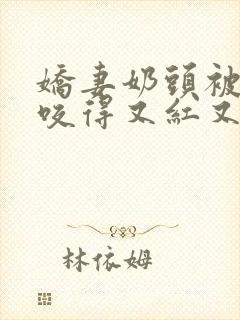 嬌妻奶頭被
咬得又紅又
林依姆